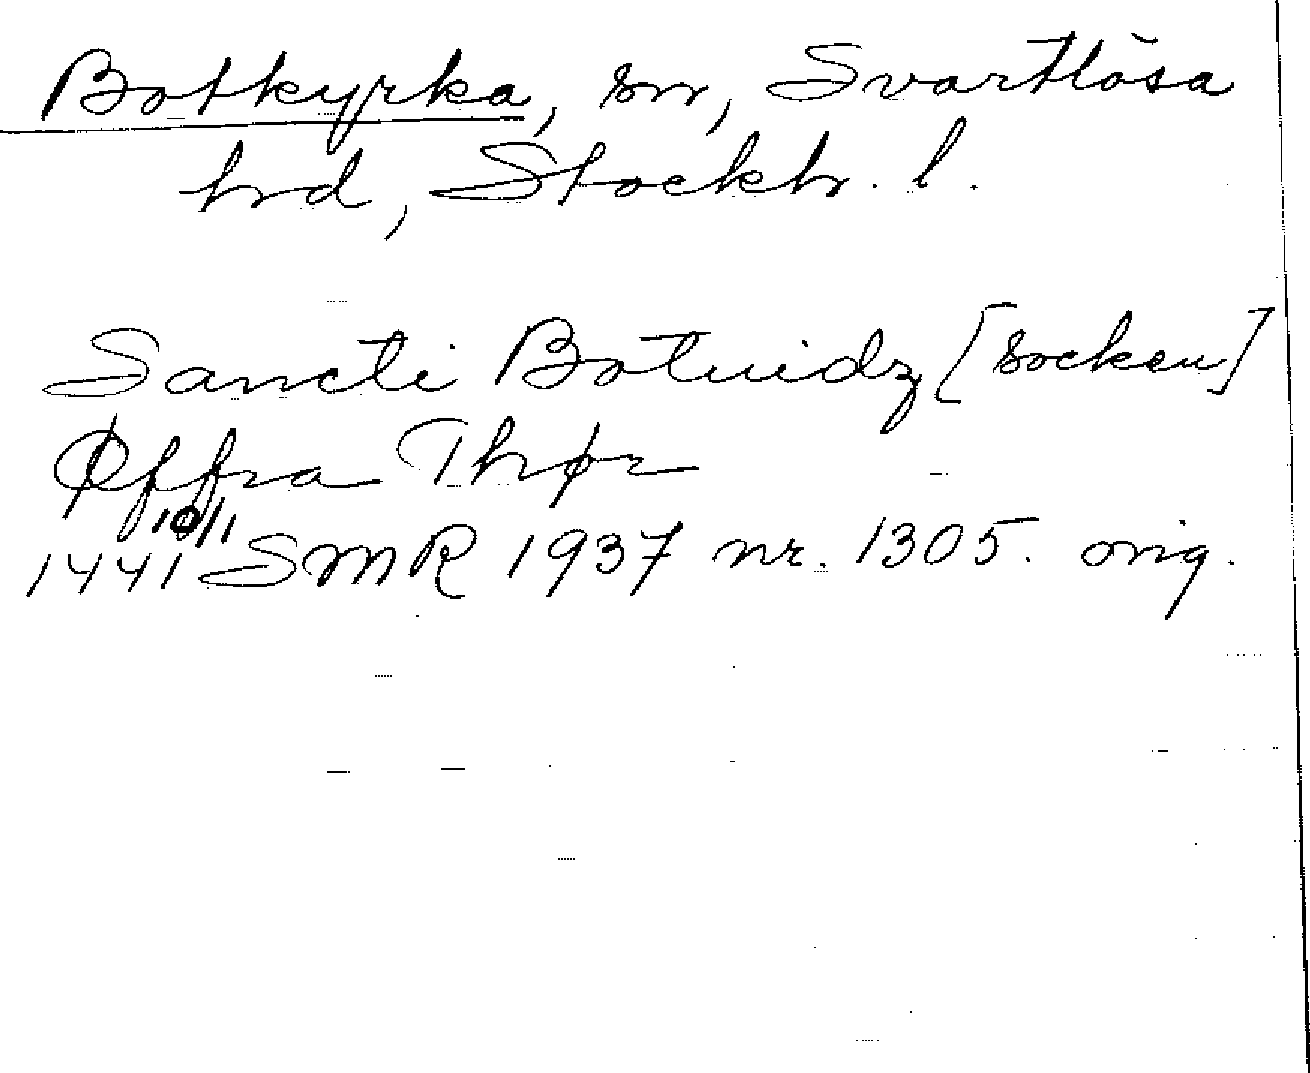 Botkyrka, sn, Svartlösa
hd, Stockh. l.
Sancti Botuidz [socken]
Øffra Thør
10/1
1441 SMR 1937 nr. 1305. orig.